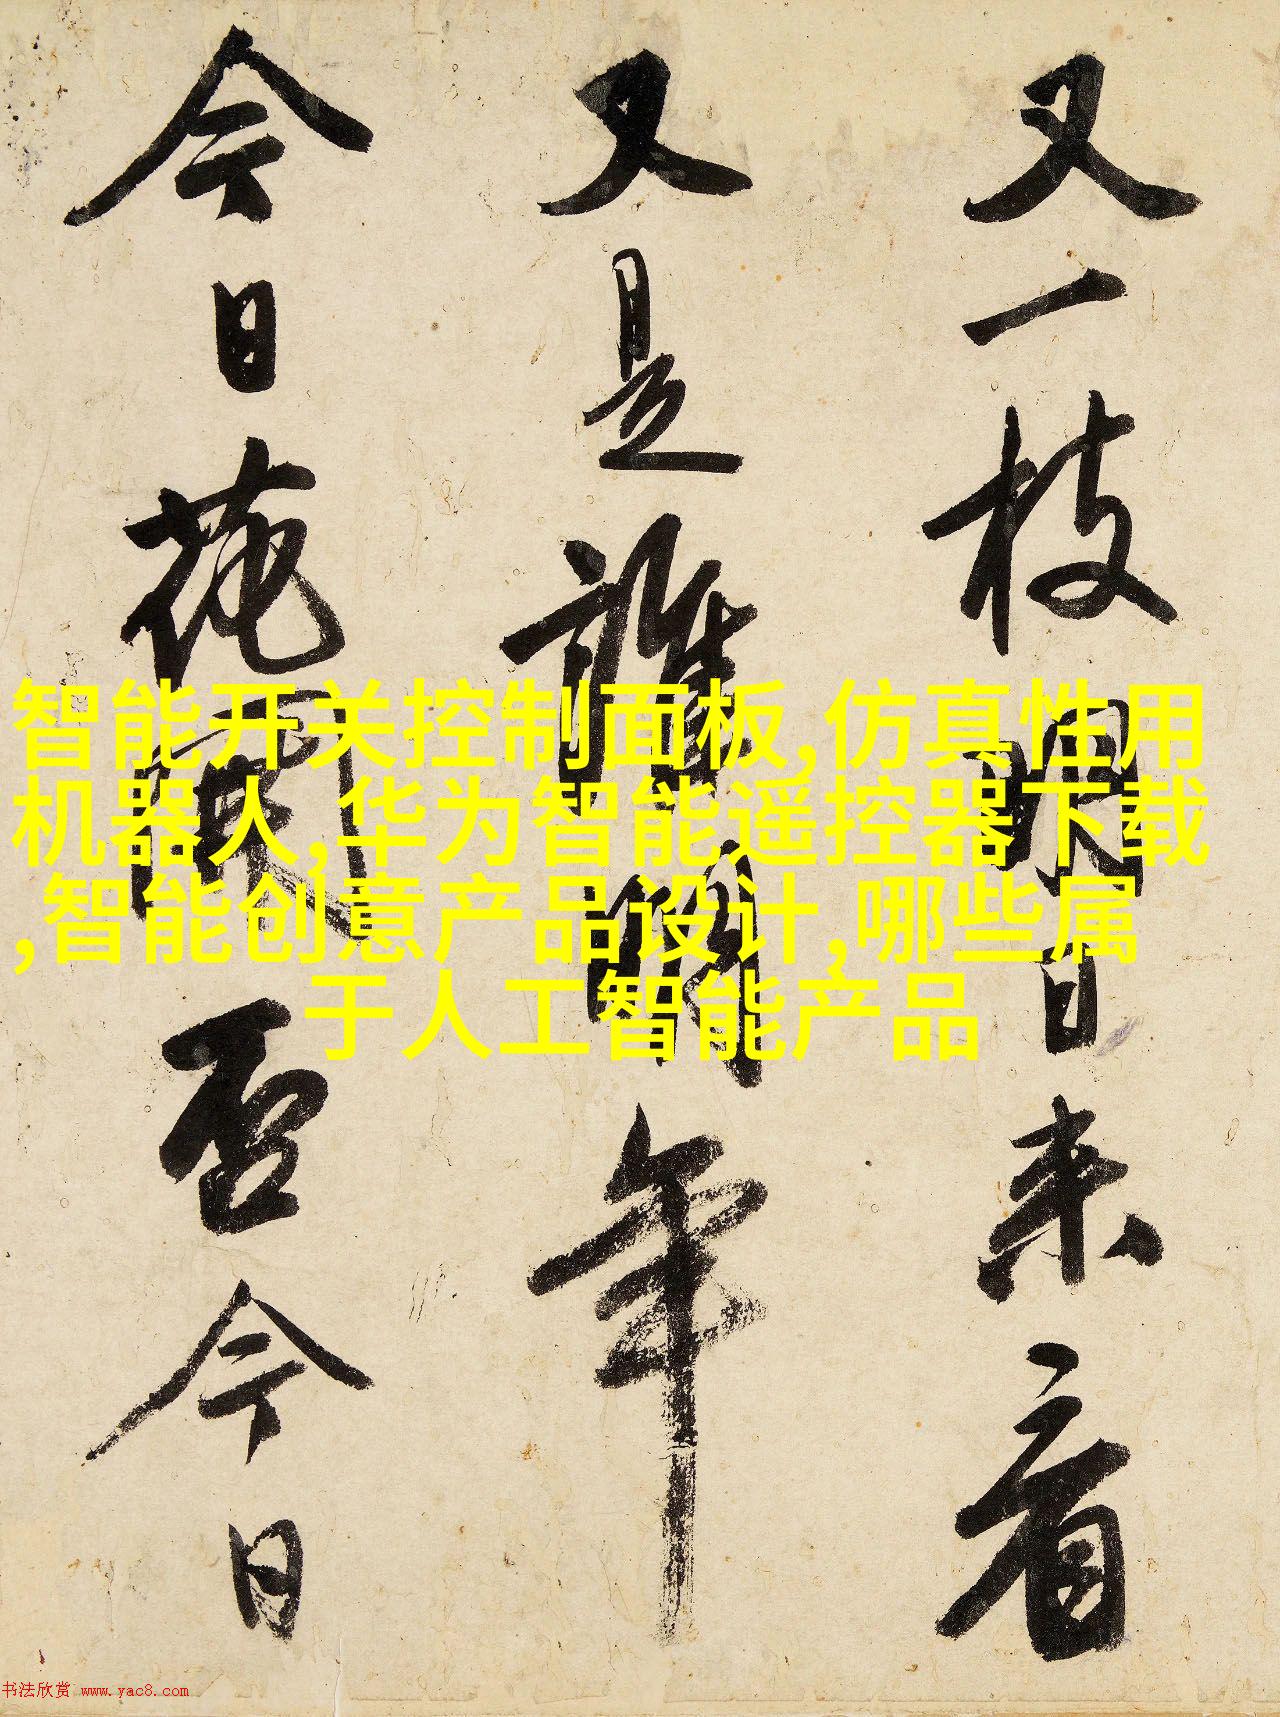 又一枝明日来看
又是誰明年
今日花開否今日
智能开关控制面板,仿真性用
机器人,华为智能遥控器下载
,智能创意产品设计,哪些属
于人工智能产品
书法欣赏 www.yac8.com